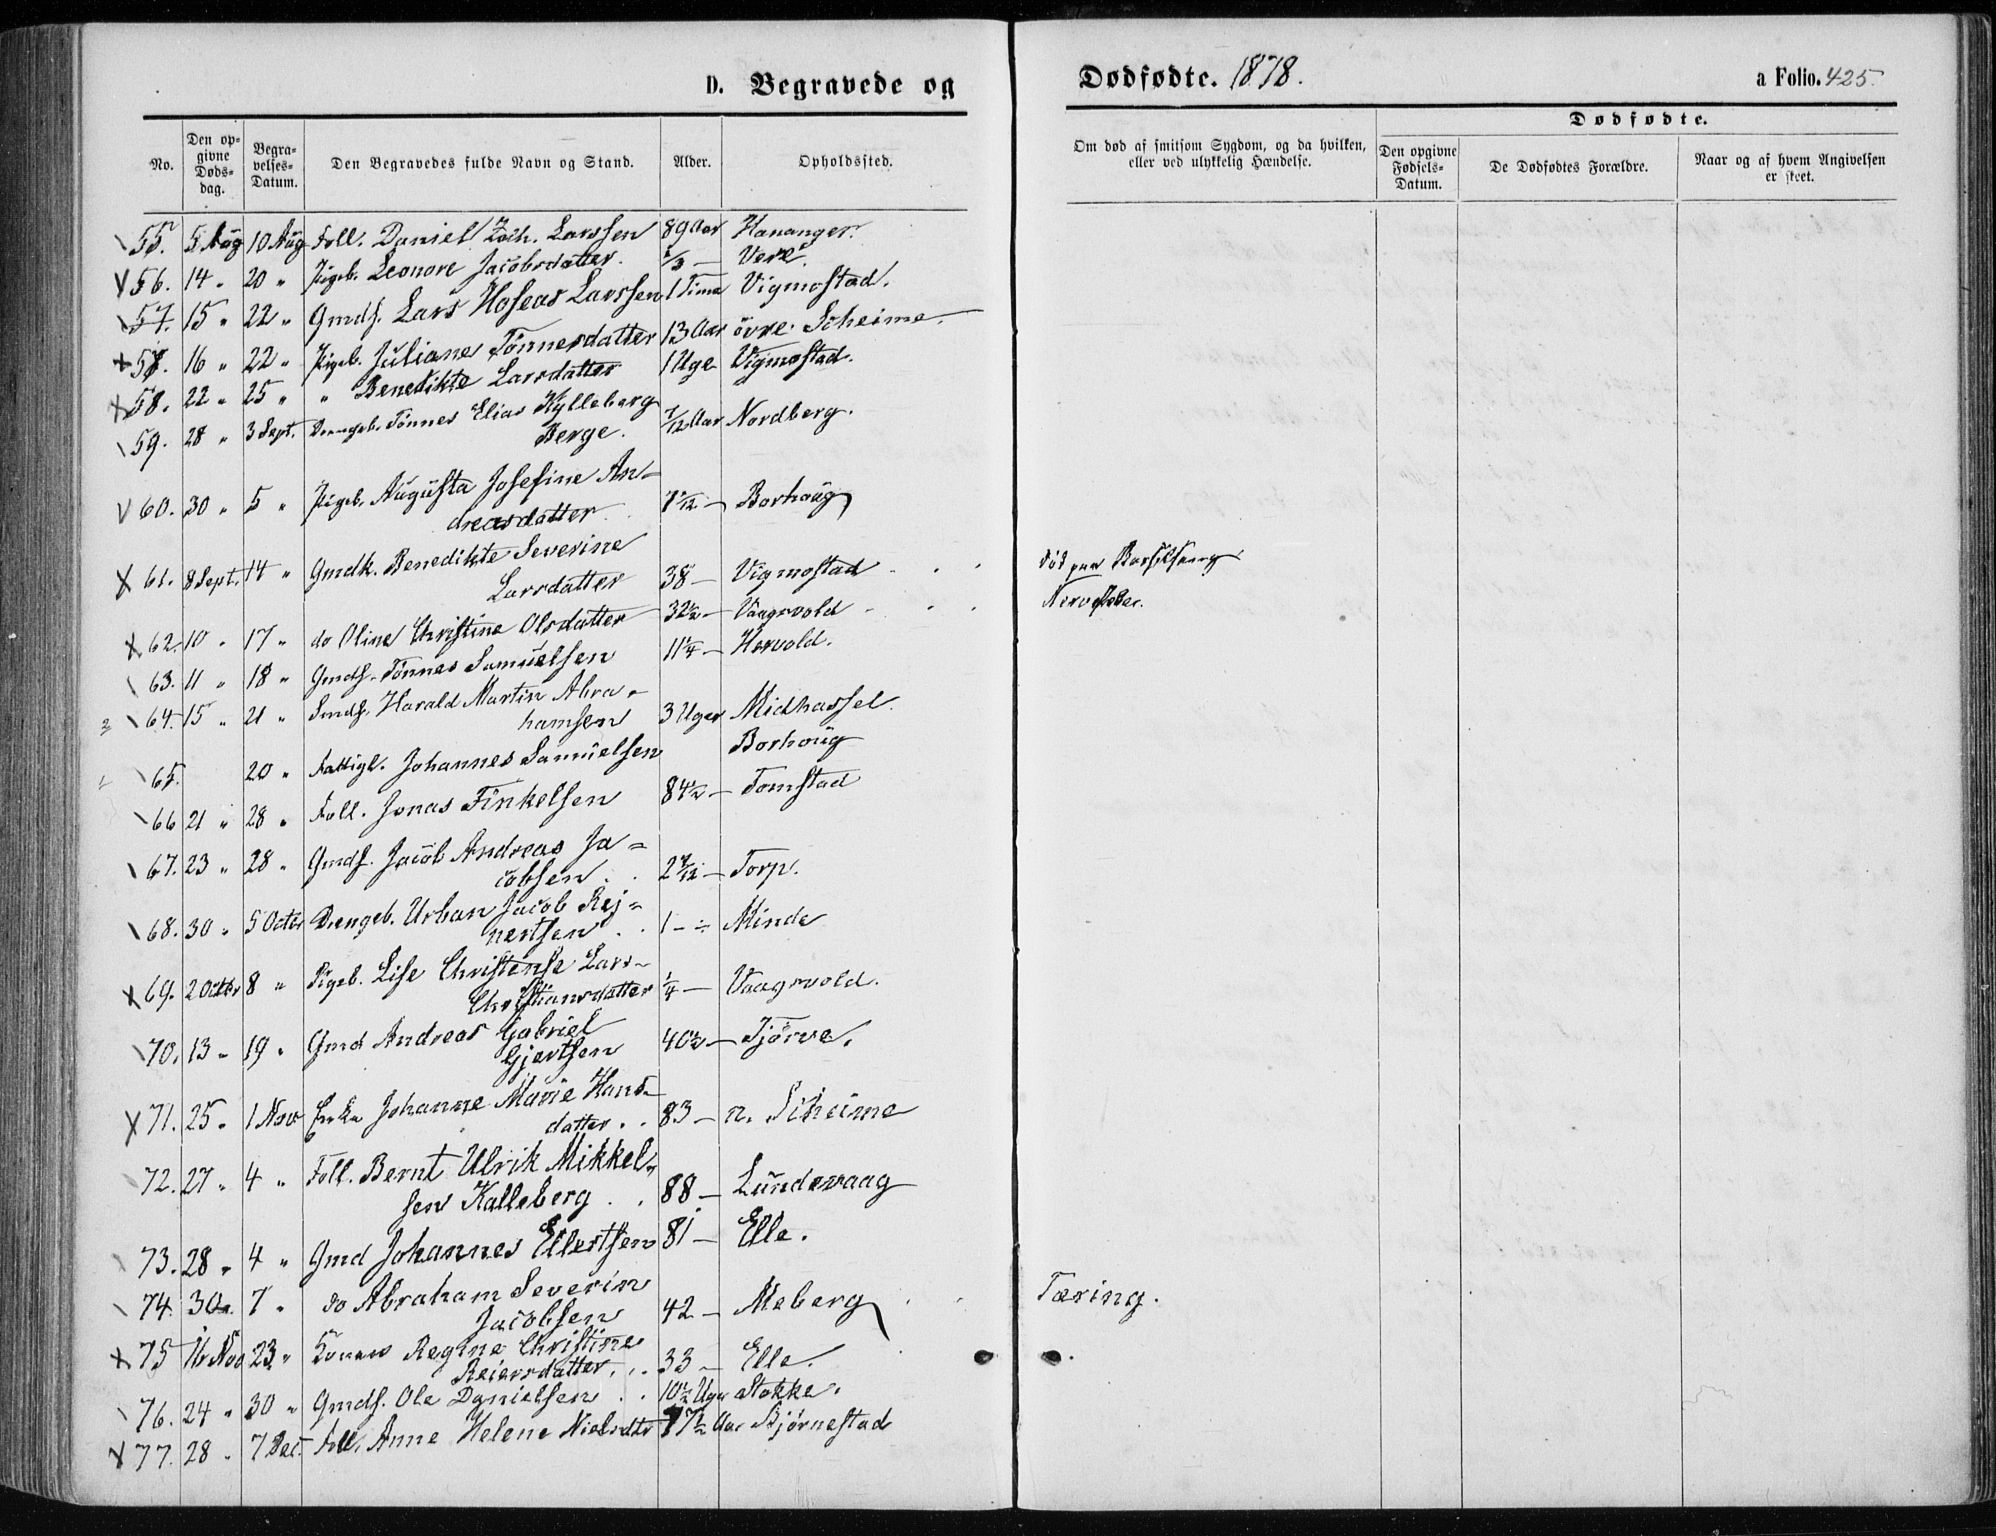 D. Begravede og
Dødfødte. 1878.
a Folio. 425.
No.
Den opgivne Døds-dag.
Begra-velses-Datum.
Den Begravedes fulde Navn og Stand.
Alder.
Opholdssted.
Om død af smitsom Sygdom, og da hvilken, eller ved ulykkelig Hændelse.
Dødfødte.
Den opgivne Fødsels-Datum.
De Dødfødtes Forældre.
Naar og af hvem Angivelsen er skeet.
55. 5 Aug 10 Aug Foll. Daniel Zach. Larssen 89 Aar Hananger.
56. 14 " 20 " Pigeb. Leonore Jacobsdatter. /3 — Vere.
57. 15 " 22 " Gmds. Lars Hoseas Larssen 1 Time Vigmostad.
57. 16 " 22 " Pigeb. Juliane Tönnesdatter 13 Aar övre Scheime.
58. 22 " 25 " " Benedikte Larsdatter 1 Uge Vigmostad.
59. 28 " 3 Sept. Drengeb. Tönnes Elias Kylleberg 7/12 Aar Nordberg.
Berge.
60. 30 " 5 " Pigeb. Augusta Josefine An-
dreasdatter 7/12 — Borhaug
61. 8 Sept. 14 " Gmdk. Benedikte Severine
Larsdatter 38 — Vigmostad . . . död paa Barselseng
62. 10 " 17 " do Oline Christine Olsdatter 32 1/2 — Vaagsvold . . . Nervefeber.
63. 11 " 18 " Gmds. Tönnes Samuelsen 11 1/4 — Hervold.
64. 15 " 21 " Smds. Harald Martin Abra-
hamsen 3 Uger Midhassel
65. 20 " Fattigl. Johannes Samuelsen Borhaug
66 21 " 28 " Foll. Jonas Tinkelsen 84 1/2 — Tomstad
67. 23 " 28 " Gmds. Jacob Andreas Ja-
cobsen . . 2 7/12 — Torp.
68. 30 " 5 Octbr Drengeb. Urban Jacob Rej-
nertsen . . 1 — Minde
69. 2 Octbr 8 " Pigeb. Lise Christense Lars-
Christiansdatter 1/4 — Vaagsvold.
70. 13 " 19 " Gmd Andreas Gabriel
Gjertsen 40 1/2 — Tjörve.
71. 25 " 1 Nov. Enke Johanne Marie Hans-
datter . . 83 — n. Scheime
72. 27 " 4 " Foll. Bernt Ulrik Mikkel-
sen Kalleberg . . 88 — Lundevaag
73. 28 " 4 " Gmd Johannes Ellertsen 81 — Elle.
74. 30 " 7 " do Abraham Severin
Jacobsen 42 — Meberg . . Tæring.
75 16 Nov 23 " Regine Christine
Reiersdatter . . 33 — Elle.
76. 24 " 30 " Gmds. Ole Danielsen . . 10 1/2 Uger Stokke.
77. 28 " 7 Dec. Foll. Anne Helene Nielsdtr 77 1/2 Aar Bjørnestad